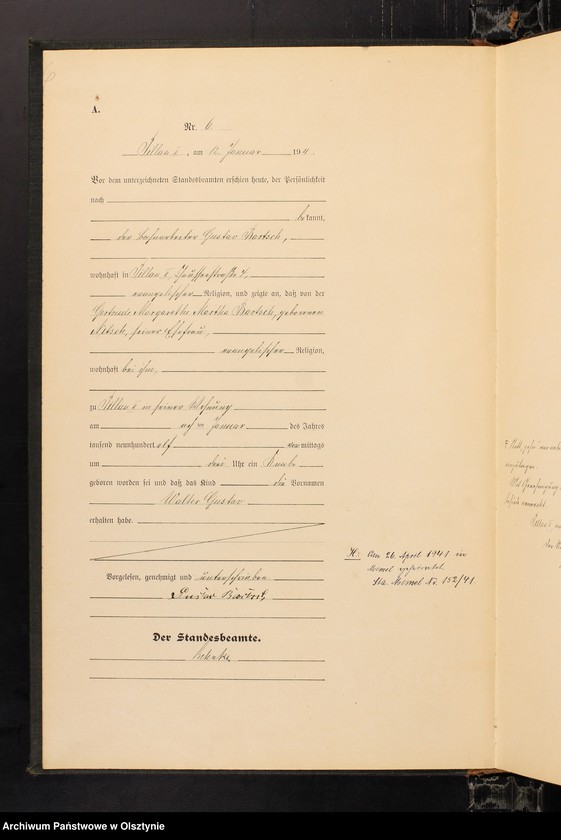 A.
Nr. 6.
Pillau I, am 12. Januar 1911.
Vor dem unterzeichneten Standesbeamten erschien heute, der Persönlichkeit
nach
bekannt,
der Bahnarbeiter Gustav Bartsch,
wohnhaft in Pillau I,
evangelischer Religion, und zeigte an, daß von der
Gertrude Margarethe Martha Bartsch, geborenen
Nitsch, seiner Ehefrau,
evangelischer Religion,
wohnhaft bei ihm,
zu Pillau I in seiner Wohnung
am Januar des Jahres
tausend neunhundert elf mittags
um drei Uhr ein Knabe
geboren worden sei und daß das Kind die Vornamen
Walter Gustav
erhalten habe.
Vorgelesen, genehmigt und unterschrieben
Gustav Bartsch
Der Standesbeamte.
H.: Am 26. April 1941 in
Memel geheiratet
Sta. Memel Nr. 152/41
Archiwum Państwowe w Olsztynie